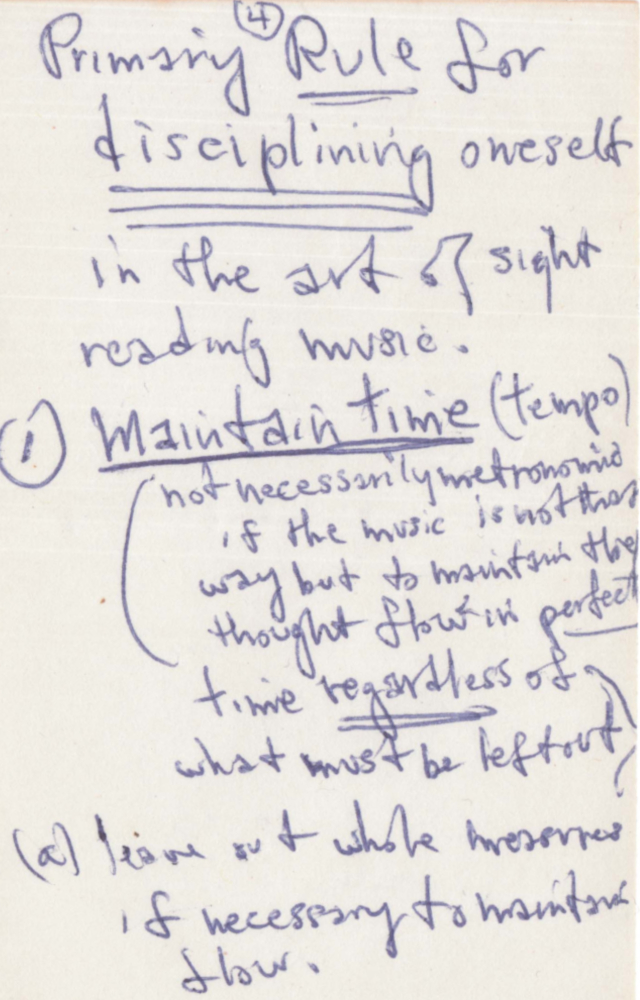 (4)
Primary Rule for
disciplining oneself
in the art of sight
reading music.
(1) Maintain time (tempo)
(not necessarily metronomic
if the music is not that
way but to maintain the
thought flow in perfect
time regardless of
what must be left out)
(a) leave out whole measures
if necessary to maintain
flow.